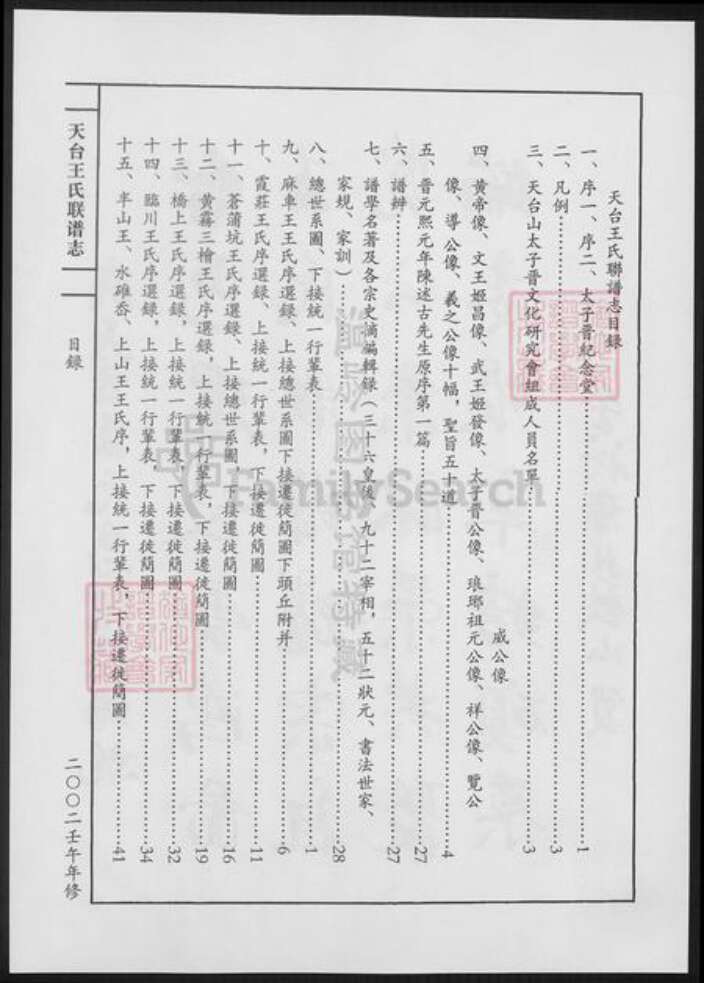 天台王氏聯譜志目録
一、序一、序二、太子晋紀念堂……1
二、凡例……3
三、天台山太子晋文化研究會組成人員名單……3
威公像
四、黄帝像、文王姬昌像、武王姬發像、太子晋公像、琅琊祖元公像、祥公像、覽公
像、導公像、羲之公像十幅，聖旨五十道……4
五、晋元熙元年陳述古先生原序第一篇……27
六、譜辨……27
七、譜學名著及各宗史摘編輯録（三十六皇後、九十二宰相，五十二狀元、書法世家、
家規、家訓）……28
八、總世系圖、下接統一行輩表……1
九、麻車王王氏序選録、上接總世系圖下接遷徙簡圖下頭丘附并……6
十、霞莊王氏序選録、上接統一行輩表，下接遷徙簡圖……11
十一、蒼蒲坑王氏序選録、上接總世系圖，下接遷徙簡圖……16
十二、黄霧三檜王氏序選録，上接統一行輩表，下接遷徙簡圖……19
十三、橋上王氏序選録，上接統一行輩表，下接遷徙簡圖……32
十四、臨川王氏序選録，上接統一行輩表，下接遷徙簡圖……34
十五、半山王、水碓岙、上山王王氏序，上接統一行輩表，下接遷徙簡圖……41
天台王氏联谱志
目録
二〇〇二壬午年修
FamilySearch